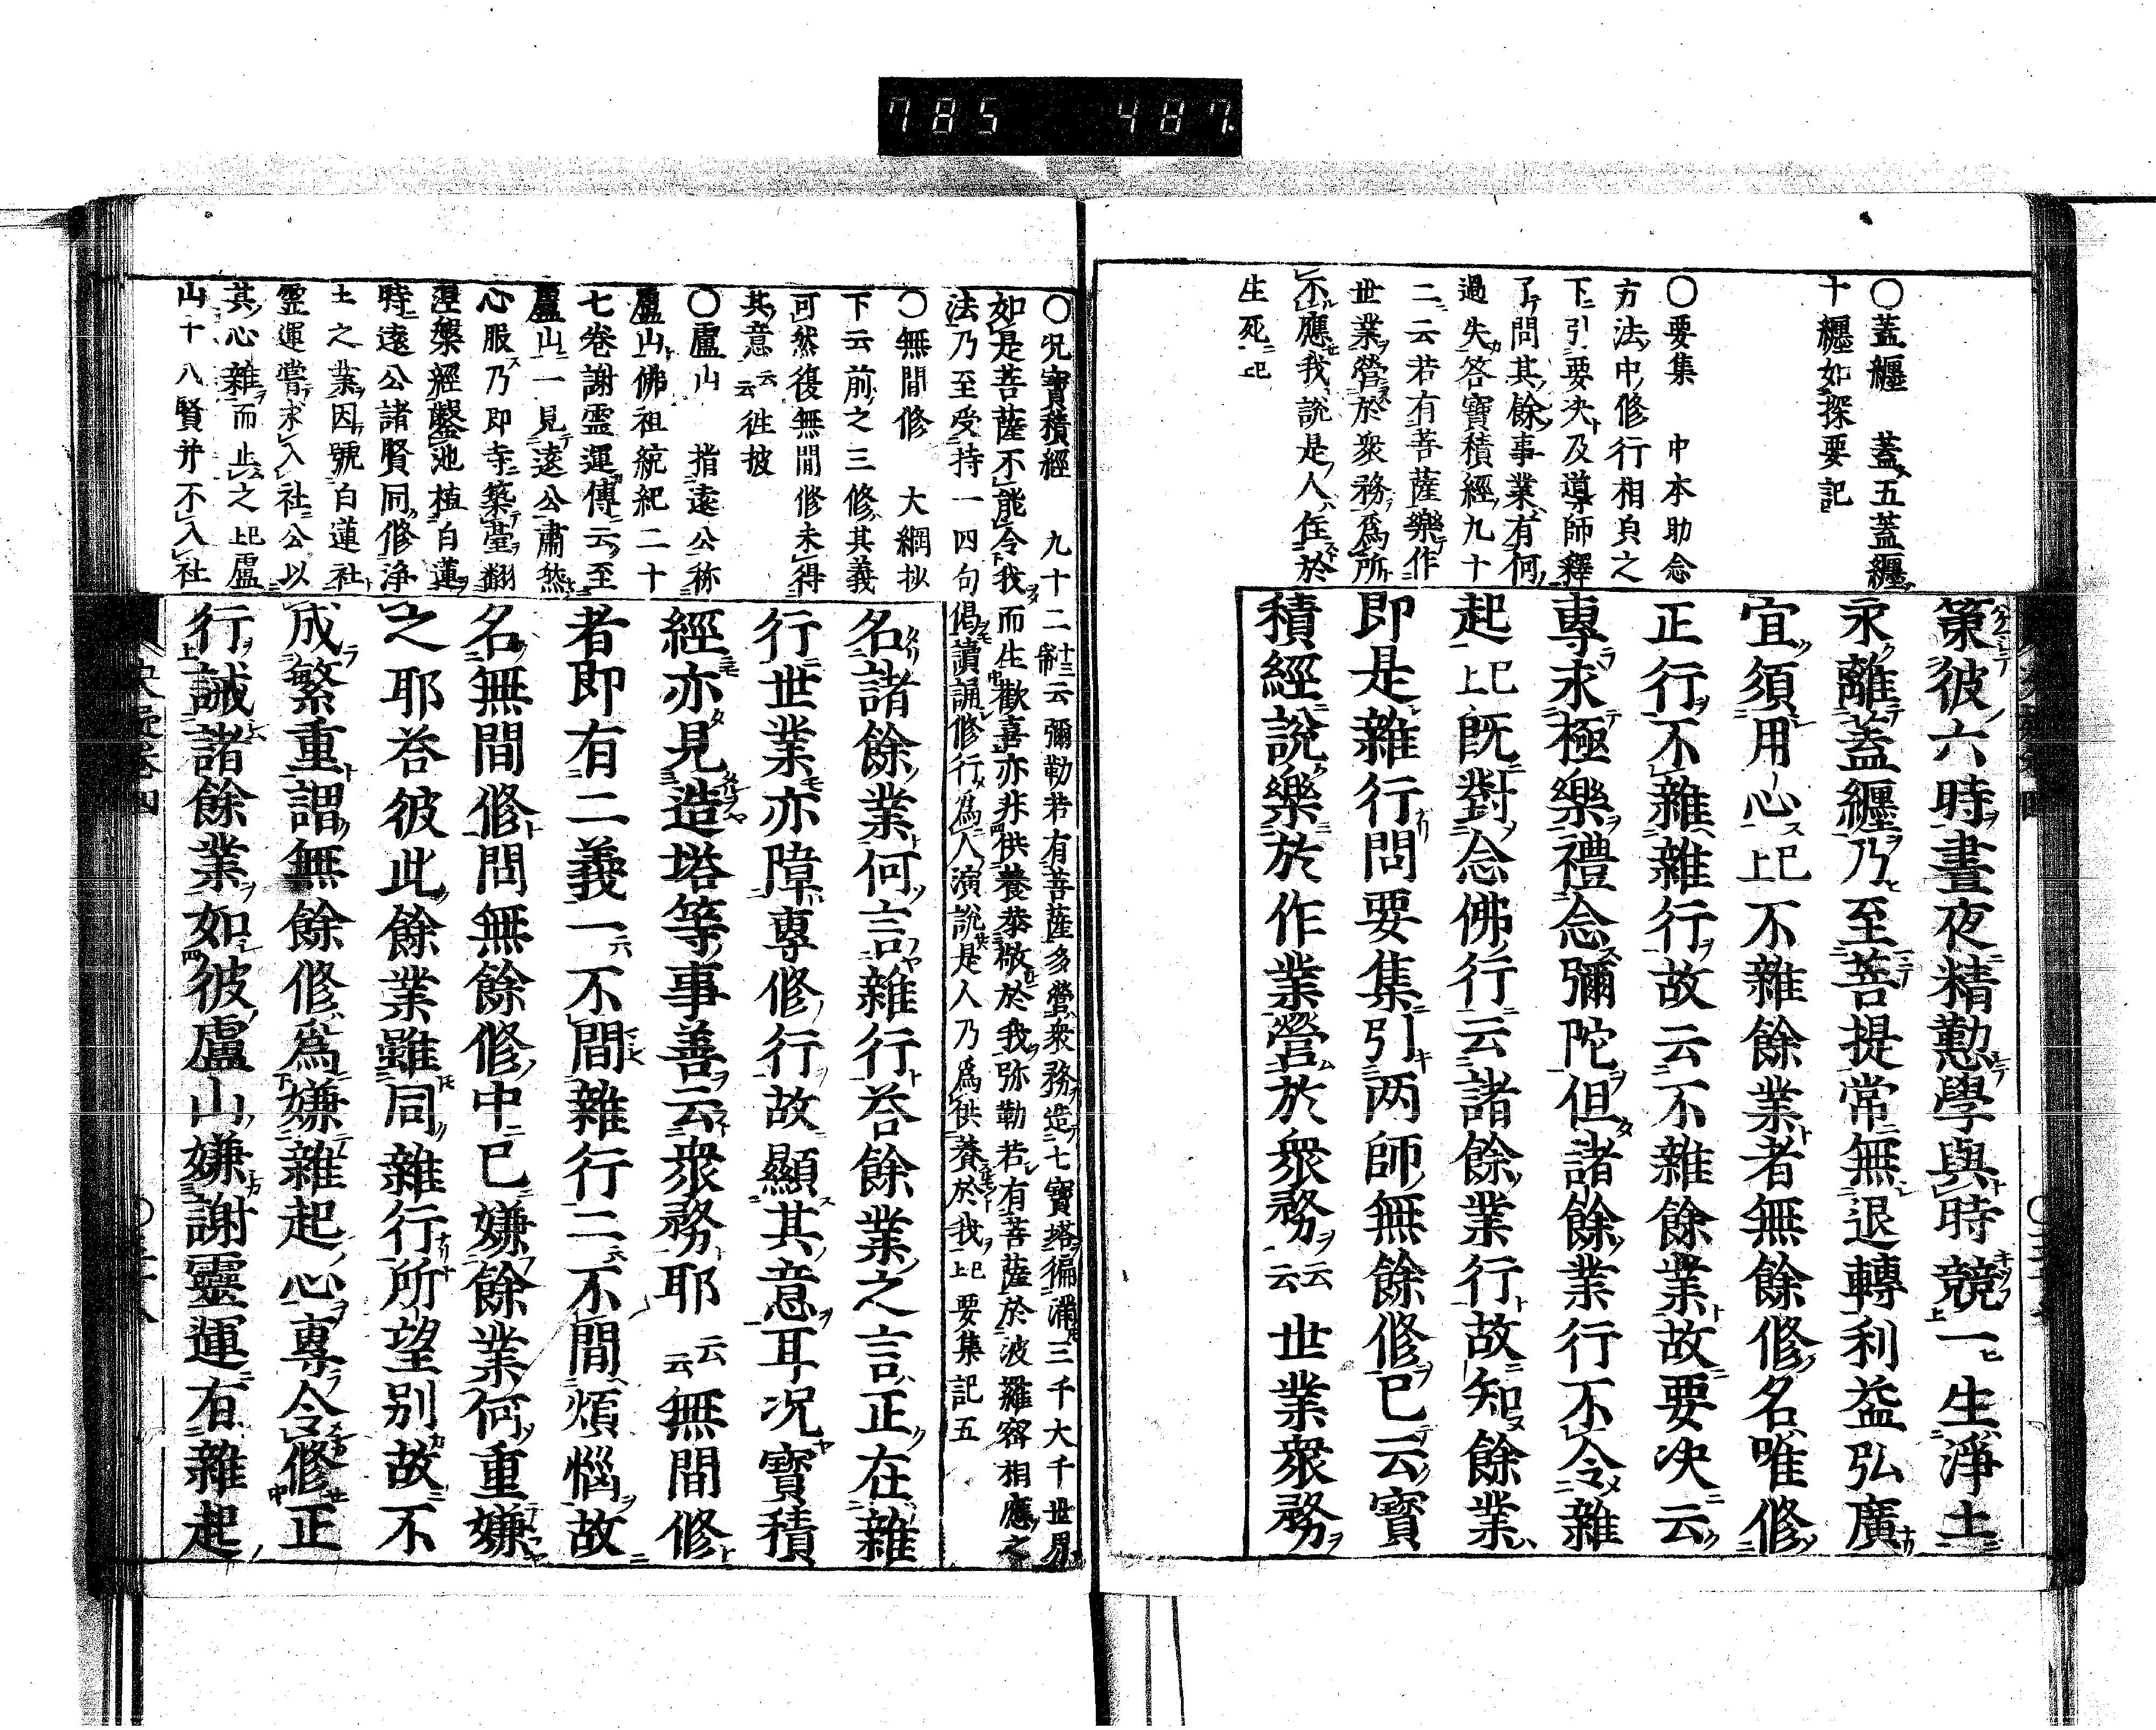 785 487
〇蓋纒 蓋五蓋纒
十纒如探要記
〇要集 中本助念
方法中修行相貟之
下引要决及導師釋
了問其餘事業有何
過失答寶積經九十
二云若有菩薩樂作
世業營於衆務爲所
不應我說是人住於
生死上已
策彼六時晝夜精懃學與時競一生淨土
永離蓋纒乃至菩提常無退轉利益弘廣
宜須用心上已不雜餘業者無餘修名唯修
正行不雜雜行故云不雜餘業故要决云
專求極樂禮念彌陀但諸餘業行不令雜
起上已既對念佛行云諸餘業行故知餘業
即是雜行問要集引两師無餘修已云寶
積經說樂於作業營於衆務云云世業衆務
〇况寶積經 九十二云彌勒若有菩薩多營衆務造七寶塔徧滿三千大千世界
如是菩薩不能令我而生歡喜亦非供養恭敬於我弥勒若有菩薩於波羅密相應之
法乃至受持一四句偈讀誦修行爲人演說是人乃爲供養於我上已要集記五
〇無間修 大綱抄
下云前之三修其義
可然復無間修未得
其意云云徃披
〇盧山 指遠公称
盧山佛祖統紀二十
七卷謝霊運傳云至
盧山一見遠公肅然
心服乃即寺築臺翻
涅槃經鑿池植白蓮
時遠公諸賢同修淨
土之業因號白蓮社
霊運嘗求入社公以
其心雜而止之上已盧
山十八賢并不入社
名諸餘業何言雜行答餘業之言正在雜
行世業亦障專修行故顯其意耳况寶積
經亦見造塔等事善云衆務耶云云無間修
者即有二義一不間雜行二不間煩惱故
名無間修問無餘修中已嫌餘業何重嫌
之耶答彼此餘業雖同雜行所望别故不
成繁重謂無餘修爲嫌雜起心專令修正
行誡諸餘業如彼盧山嫌謝靈運有雜起